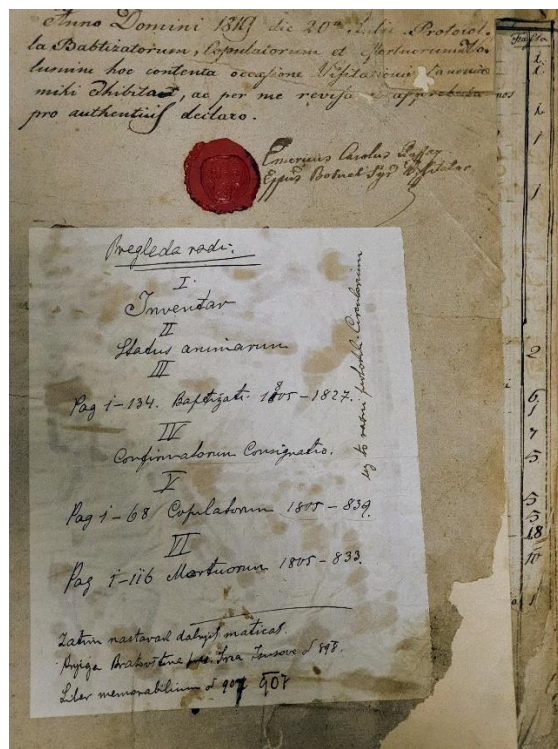 Anno Domini 1819 die 20ª Julii Protocol-
la Babtizatorum, Copulatorum et Mortuorum Vo-
lumini hoc contenta occasione Visitationis Canonicae
mihi Exhibita, ac per me revisa et approbata
pro authenticis declaro.
Emericus Carolus
Eppus
Pregleda radi:
I
Inventar
II
Status animarum
III
Pag 1-134. Baptizati 1805-1827.
IV
Confirmatorum Consignatio.
V
Pag 1-68 Copulatorum 1805-839.
VI
Pag 1-116 Mortuorum 1805-833.
uz to razni protokol. Circularium
Zatim nastavak daljnjih maticas.
Knjiga Bratovštine pres. Srca Isusova od 898.
Liber memorabilium od 907 907
Pagina
1
1
2
1
1
2
6
1
7
5
5
5
18
10
1